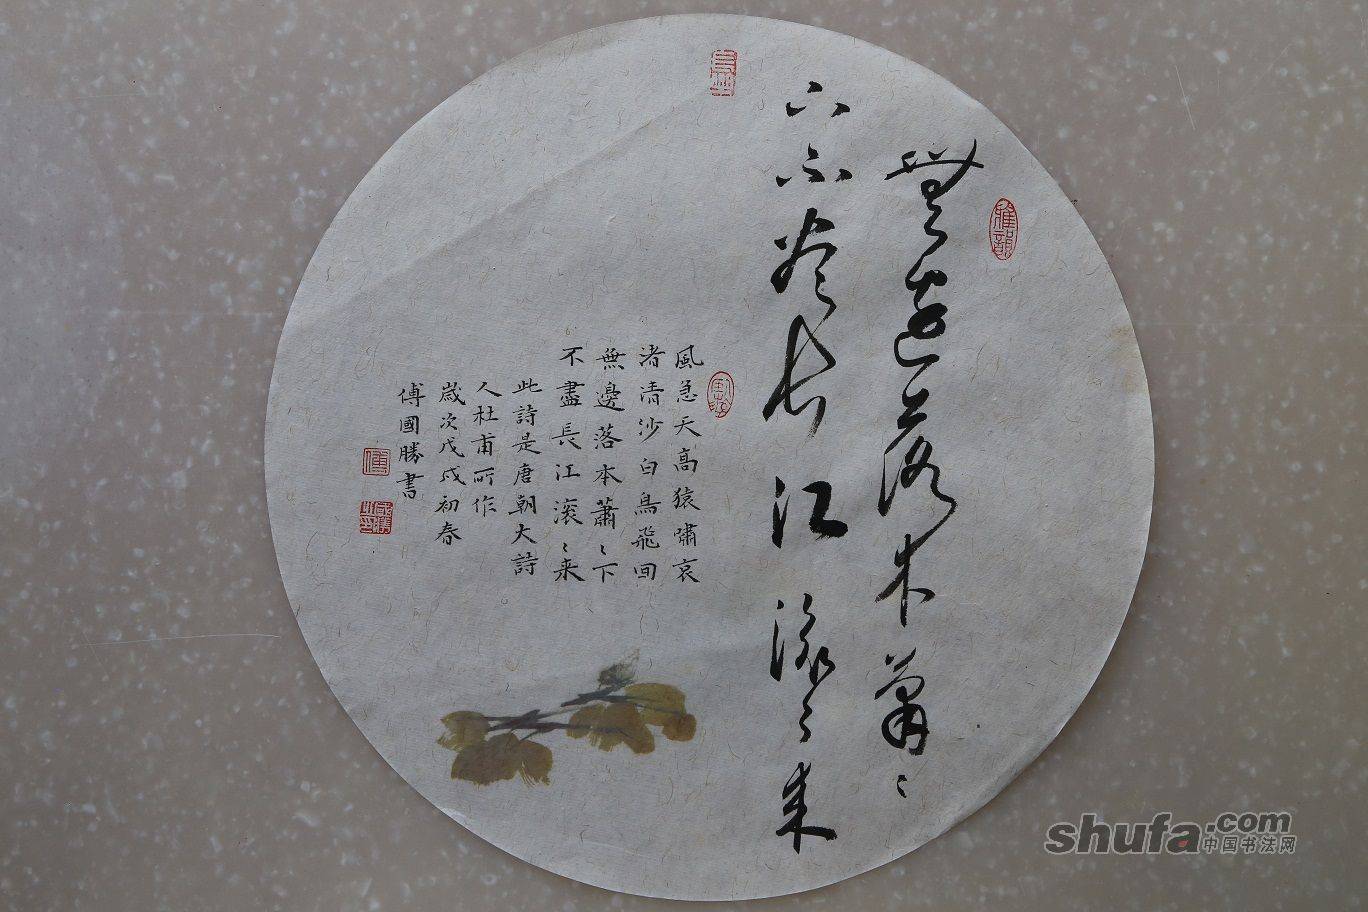 無邊落木蕭〻
下不盡長江滚〻来
風急天高猿嘯哀
渚清沙白鳥飛囬
無邊落本蕭〻下
不盡長江滚〻来
此詩是唐朝大詩
人杜甫所作
歲次戊戌初春
傅國勝書
雅韻
傅
shufa.com
中国书法网